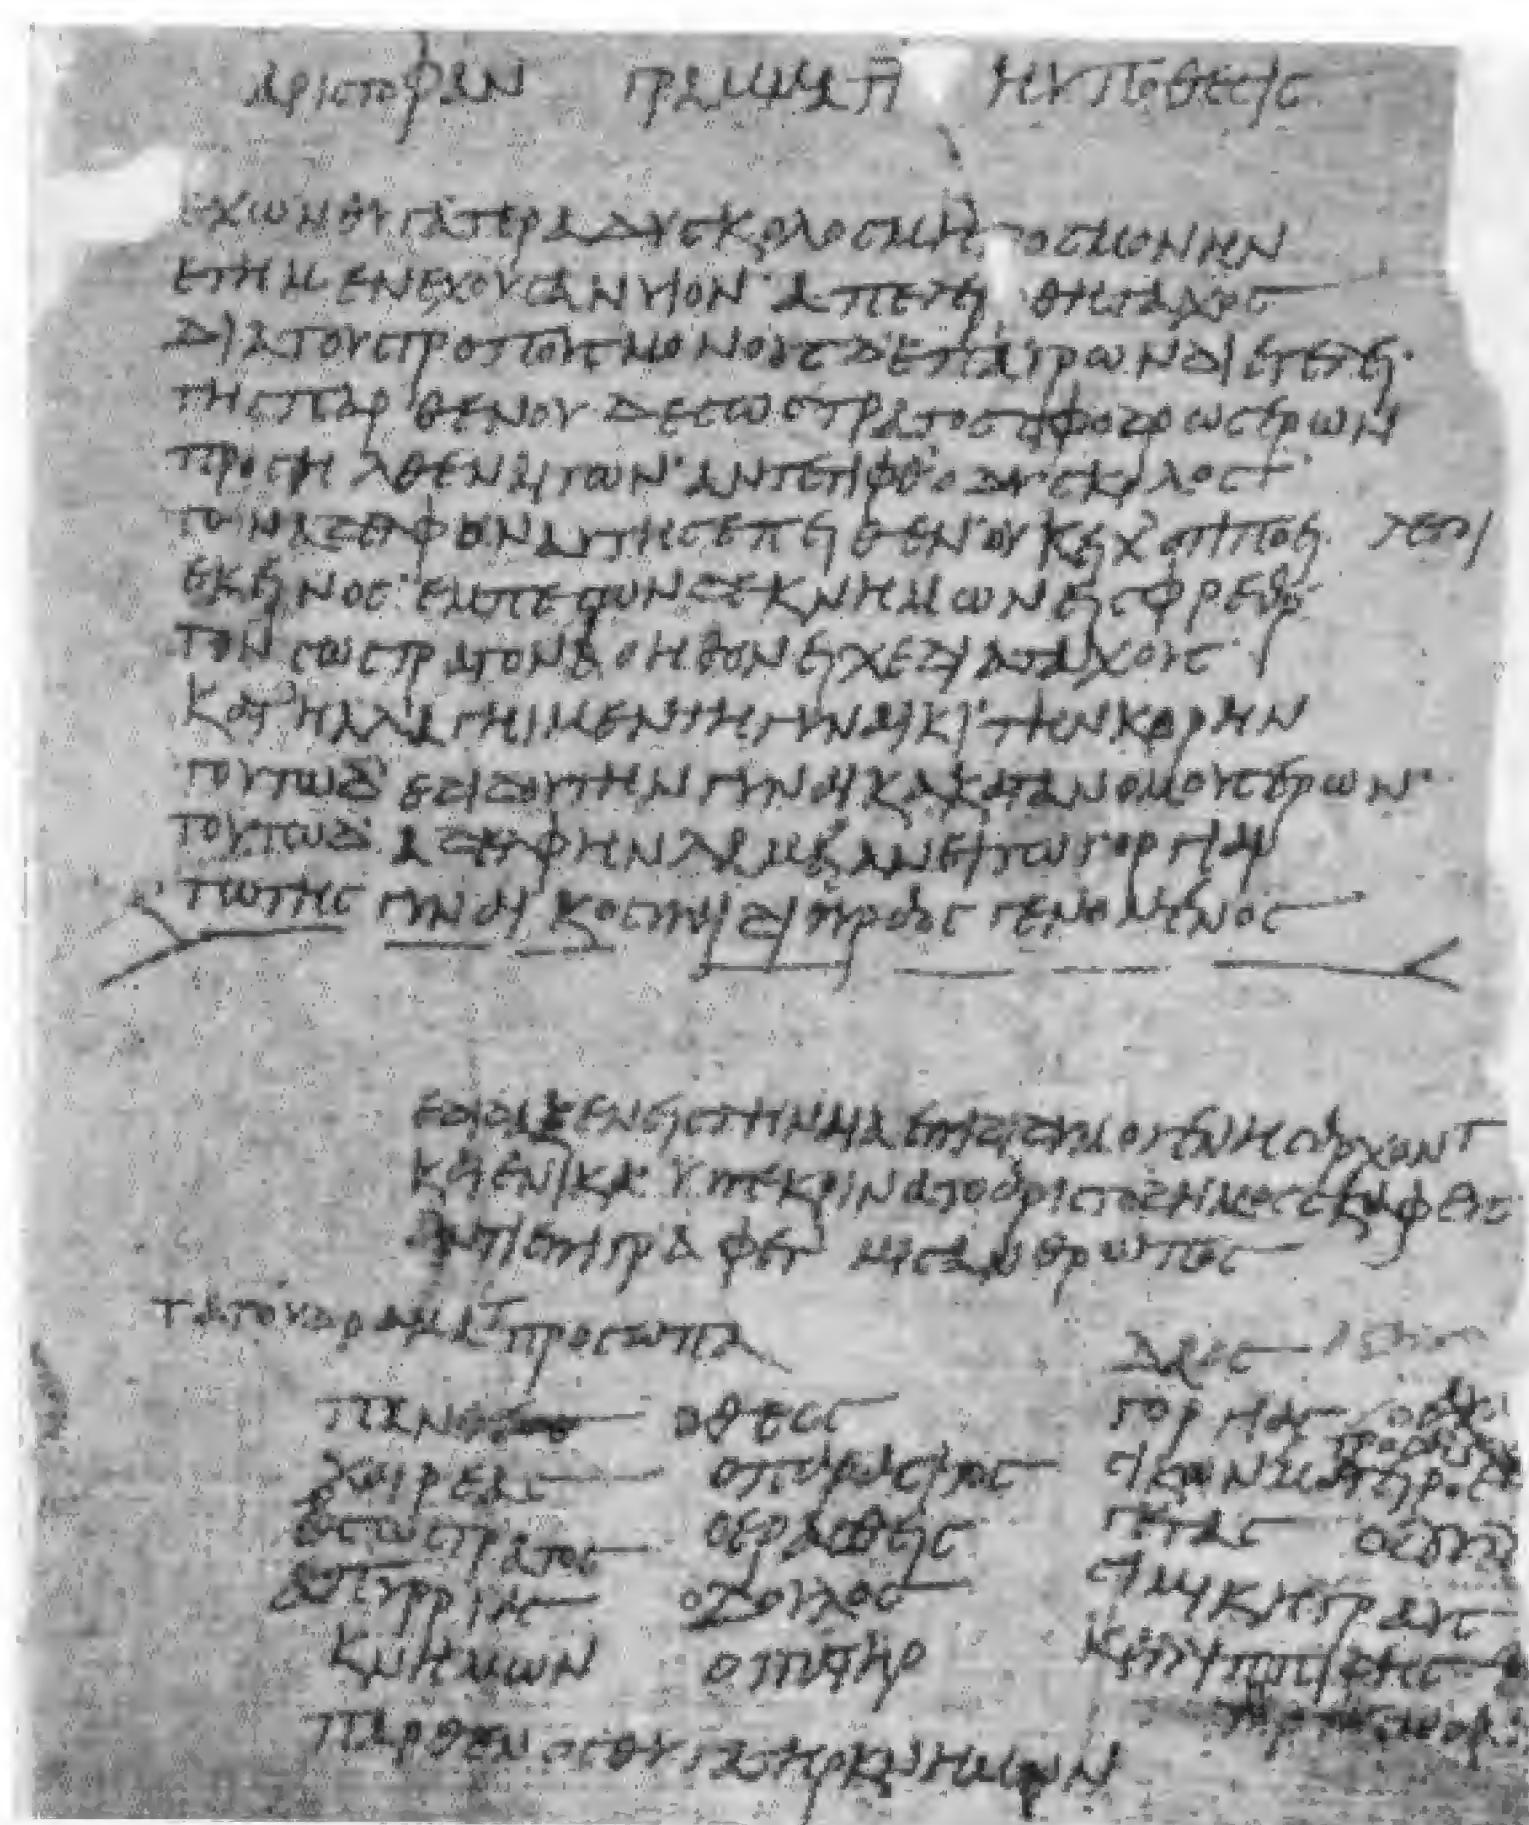 ΑΡΙϹΤΟΦΑΝ ΓΡΑΜΜΑΤ Η ΥΠΟΘΕϹΙϹ
ΕΧΩΝ ΘΥΓΑΤΕΡΑ ΔΥϹΚΟΛΟϹ ΜΗΤΟϹ ΜΟΝΗΝ
ΕΓΗΜΕΝ ΕΧΟΥϹΑΝ ΥΙΟΝ ΑΠΕΛΕΙΦΘΗ ΤΑΧΟϹ
ΔΙΑ ΤΟΥϹ ΤΡΟΠΟΥϹ ΜΟΝΟΥϹ Δ ΕΠ ΑΓΡΩΝ ΔΙΕΤΕΛΕΙ
ΤΗϹ ΠΑΡΘΕΝΟΥ ΔΕ ϹΩϹΤΡΑΤΟϹ ϹΦΟΔΡΩϹ ΕΡΩΝ
ΠΡΟϹΗΛΘΕΝ ΑΙΤΩΝ ΑΝΤΕΠΙΦΘ Ο ΔΥϹΚΟΛΟϹ
ΤΟΝ ΑΔΕΛΦΟΝ ΑΥΤΗϹ ΕΠΕΙΘΕΝ ΟΥΚ ΕΙΧ ΟΤΙ ΠΟΕΙ ΛΕΓΟΙ
ΕΚΕΙΝΟϹ ΕΜΠΕϹΩΝ ΔΕ ΚΝΗΜΩΝ ΕΙϹ ΦΡΕΑΡ
ΤΟΝ ϹΩϹΤΡΑΤΟΝ ΒΟΗΘΟΝ ΕΙΧΕ ΔΙΑ ΤΑΧΟΥϹ
ΚΑΤΗΛΛΑΓΗ ΜΕΝ ΤΗ ΓΥΝΑΙΚΙ ΤΗΝ ΚΟΡΗΝ
ΤΟΥΤΩ Δ ΕΔΙΔΟΥ ΤΗΝ ΓΥΝΑΙΚΑ ΚΑΤΑ ΝΟΜΟΥϹ ΕΡΩΝ
ΤΟΥΤΟΥ Δ ΑΔΕΛΦΗΝ ΛΑΜΒΑΝΕΙ ΤΩ ΓΟΡΓΙΑ
ΤΩ ΤΗϹ ΓΥΝΑΙΚΟϹ ΠΑΙΔΙ ΠΡΑΟϹ ΓΕΝΟΜΕΝΟϹ
ΕΔΙΔΑΞΕΝ ΕΙϹ ΛΗΝΑΙΑ ΕΠΙ ΔΙΔΥΜΟΓΕΝΗϹ ΑΡΧΟΝΤ
ΚΑΙ ΕΝΙΚΑ ΥΠΕΚΡΙΝΑΤΟ ΑΡΙϹΤΟΔΗΜΟϹ ϹΚΑΦΕΥϹ
ΑΝΤΙΕΠΙΓΡΑΦΕΤ ΜΙϹΑΝΘΡΩΠΟϹ
ΤΑ ΤΟΥ ΔΡΑΜΑΤ ΠΡΟϹΩΠΑ
ΔΑΟϹ
ΠΑΝ Ο ΘΕΟϹ ΓΟΡΓΙΑϹ
ΧΑΙΡΕΑϹ Ο ΠΑΡΑϹΙΤΟϹ ϹΙΚΩΝ ΜΑΓΕΙΡΟϹ
ϹΩϹΤΡΑΤΟϹ Ο ΕΡΑϹΘΕΙϹ ΓΕΤΑϹ
ΠΥΡΡΙΑϹ Ο ΔΟΥΛΟϹ ϹΙΜΙΚΗ ΓΡΑΥϹ
ΚΝΗΜΩΝ Ο ΠΑΤΗΡ ΚΑΛΛΙΠΠΙΔΗϹ
ΠΑΡΘΕΝΟϹ ΘΥΓΑΤΗΡ ΚΝΗΜΩΝ